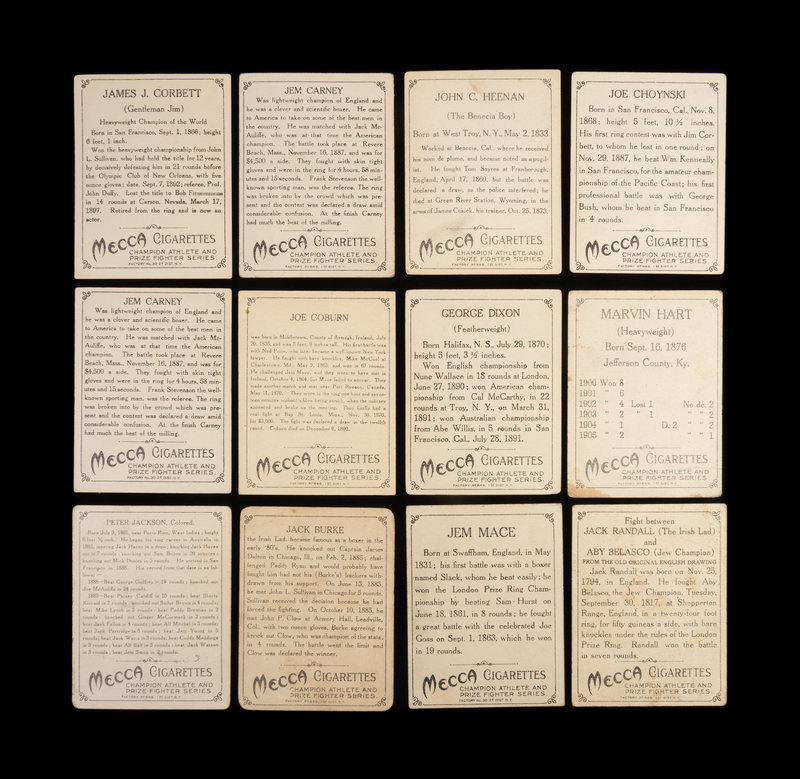 JAMES J. CORBETT
(Gentleman Jim)
Heavyweight Champion of the World
Born in San Francisco, Sept. 1, 1866; height
6 feet, 1 inch.
Won the heavyweight championship from John
L. Sullivan, who had held the title for 12 years,
by decisively defeating him in 21 rounds before
the Olympic Club of New Orleans, with five
ounce gloves; date, Sept. 7, 1892; referee, Prof.
John Duffy. Lost the title to Bob Fitzsimmons
in 14 rounds at Carson, Nevada, March 17,
1897. Retired from the ring and is now an
actor.
MECCA CIGARETTES
CHAMPION ATHLETE AND
PRIZE FIGHTER SERIES.
JEM CARNEY
Was lightweight champion of England and
he was a clever and scientific boxer. He came
to America to take on some of the best men in
the country. He was matched with Jack Mc-
Auliffe, who was at that time the American
champion. The battle took place at Revere
Beach, Mass., November 16, 1887, and was for
$4,500 a side. They fought with skin tight
gloves and were in the ring for 4 hours, 58 min-
utes and 15 seconds. Frank Stevenson the well-
known sporting man, was the referee. The ring
was broken into by the crowd which was pre-
sent and the contest was declared a draw amid
considerable confusion. At the finish Carney
had much the best of the milling.
MECCA CIGARETTES
CHAMPION ATHLETE AND
PRIZE FIGHTER SERIES.
JOHN C. HEENAN
(The Benecia Boy)
Born at West Troy, N. Y., May 2, 1833
Worked at Benecia, Cal., where he received
his nom de plume, and became noted as a pugil-
ist. He fought Tom Sayres at Farnborough,
England, April 17, 1860, but the battle was
declared a draw, as the police interfered; he
died at Green River Station, Wyoming, in the
arms of James Cusick, his trainer, Oct. 25, 1873.
MECCA CIGARETTES
CHAMPION ATHLETE AND
PRIZE FIGHTER SERIES.
JOE CHOYNSKI
Born in San Francisco, Cal., Nov. 8,
1868; height 5 feet, 10 ½ inches.
His first ring contest was with Jim Cor-
bett, to whom he lost in one round; on
Nov. 29, 1887, he beat Wm. Kenneally
in San Francisco, for the amateur cham-
pionship of the Pacific Coast; his first
professional battle was with George
Bush, whom he beat in San Francisco
in 4 rounds.
MECCA CIGARETTES
CHAMPION ATHLETE AND
PRIZE FIGHTER SERIES.
JEM CARNEY
Was lightweight champion of England and
he was a clever and scientific boxer. He came
to America to take on some of the best men in
the country. He was matched with Jack Mc-
Auliffe, who was at that time the American
champion. The battle took place at Revere
Beach, Mass., November 16, 1887, and was for
$4,500 a side. They fought with skin tight
gloves and were in the ring for 4 hours, 58 min-
utes and 15 seconds. Frank Stevenson the well-
known sporting man, was the referee. The ring
was broken into by the crowd which was pre-
sent and the contest was declared a draw amid
considerable confusion. At the finish Carney
had much the best of the milling.
MECCA CIGARETTES
CHAMPION ATHLETE AND
PRIZE FIGHTER SERIES.
JOE COBURN
was born in Middletown, County of Armagh, Ireland, July
20, 1835, and was 5 feet, 9 inches tall. His first battle was
with Ned Price, who later became a well known New York
lawyer. He fought with bare knuckles, Mike McCool at
Charlestown, Md., May 5, 1863, and won in 67 rounds.
He challenged Jem Mace, and they were to have met in
Ireland, October 4, 1864, but Mace failed to appear. They
made another match and met near Port Dover, Canada,
May 11, 1870. They were in the ring one hour and seven-
teen minutes without a blow being struck, when the military
appeared and broke up the meeting. They finally had a
real fight at Bay St. Louis, Miss., Nov. 30, 1870,
for $3,000. The fight was declared a draw in the twelfth
round. Coburn died on December 6, 1890.
MECCA CIGARETTES
CHAMPION ATHLETE AND
PRIZE FIGHTER SERIES.
GEORGE DIXON
(Featherweight)
Born Halifax, N. S., July 29, 1870;
height 5 feet, 3 ½ inches.
Won English championship from
Nunc Wallace in 18 rounds at London,
June 27, 1890; won American cham-
pionship from Cal McCarthy, in 22
rounds at Troy, N. Y., on March 31,
1891; won Australian championship
from Abe Willis, in 5 rounds in San
Francisco, Cal., July 28, 1891.
MECCA CIGARETTES
CHAMPION ATHLETE AND
PRIZE FIGHTER SERIES.
MARVIN HART
(Heavyweight)
Born Sept. 16, 1876
Jefferson County, Ky.
1900 Won 8
1901 " 6
1902 " 4 Lost 1 No dc. 2
1903 " 2 " 1 " " 2
1904 " 1 D. 2 " " 2
1905 " 2 " " 1
MECCA CIGARETTES
CHAMPION ATHLETE AND
PRIZE FIGHTER SERIES.
PETER JACKSON, Colored.
Born July 3, 1861, near Porto Rico, West Indies; height
MECCA CIGARETTES
CHAMPION ATHLETE AND
PRIZE FIGHTER SERIES.
JACK BURKE
the Irish Lad, became famous as a boxer in the
early '80's. He knocked out Captain James
Dalton in Chicago, Ill., on Feb. 2, 1885, chal-
lenged Paddy Ryan and would probably have
fought him had not his (Burke's) backers with-
drawn from his support. On June 13, 1885,
he met John L. Sullivan in Chicago for 5 rounds.
Sullivan received the decision because he had
forced the fighting. On October 10, 1885, he
met John P. Clow at Armory Hall, Leadville,
Col., with two ounce gloves, Burke agreeing to
knock out Clow, who was champion of the state,
in 4 rounds. The battle went the limit and
Clow was declared the winner.
MECCA CIGARETTES
CHAMPION ATHLETE AND
PRIZE FIGHTER SERIES.
JEM MACE
Born at Swaffham, England, in May
1831; his first battle was with a boxer
named Slack, whom he beat easily; he
won the London Prize Ring Cham-
pionship by beating Sam Hurst on
June 18, 1861, in 8 rounds; he fought
a great battle with the celebrated Joe
Goss on Sept. 1, 1863, which he won
in 19 rounds.
MECCA CIGARETTES
CHAMPION ATHLETE AND
PRIZE FIGHTER SERIES.
Fight between
JACK RANDALL (The Irish Lad)
and
ABY BELASCO (Jew Champion)
FROM THE OLD ORIGINAL ENGLISH DRAWING
Jack Randall was born on Nov. 25,
1794, in England. He fought Aby
Belasco, the Jew Champion, Tuesday,
September 30, 1817, at Shepperton
Range, England, in a twenty-four foot
ring, for fifty guineas a side, with bare
knuckles under the rules of the London
Prize Ring. Randall won the battle
in seven rounds.
MECCA CIGARETTES
CHAMPION ATHLETE AND
PRIZE FIGHTER SERIES.